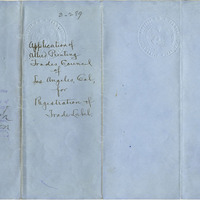 3-239
Application of
Allied Printing
Trades Council
of
Los Angeles, Cal,
for
Registration of
Trade Label.